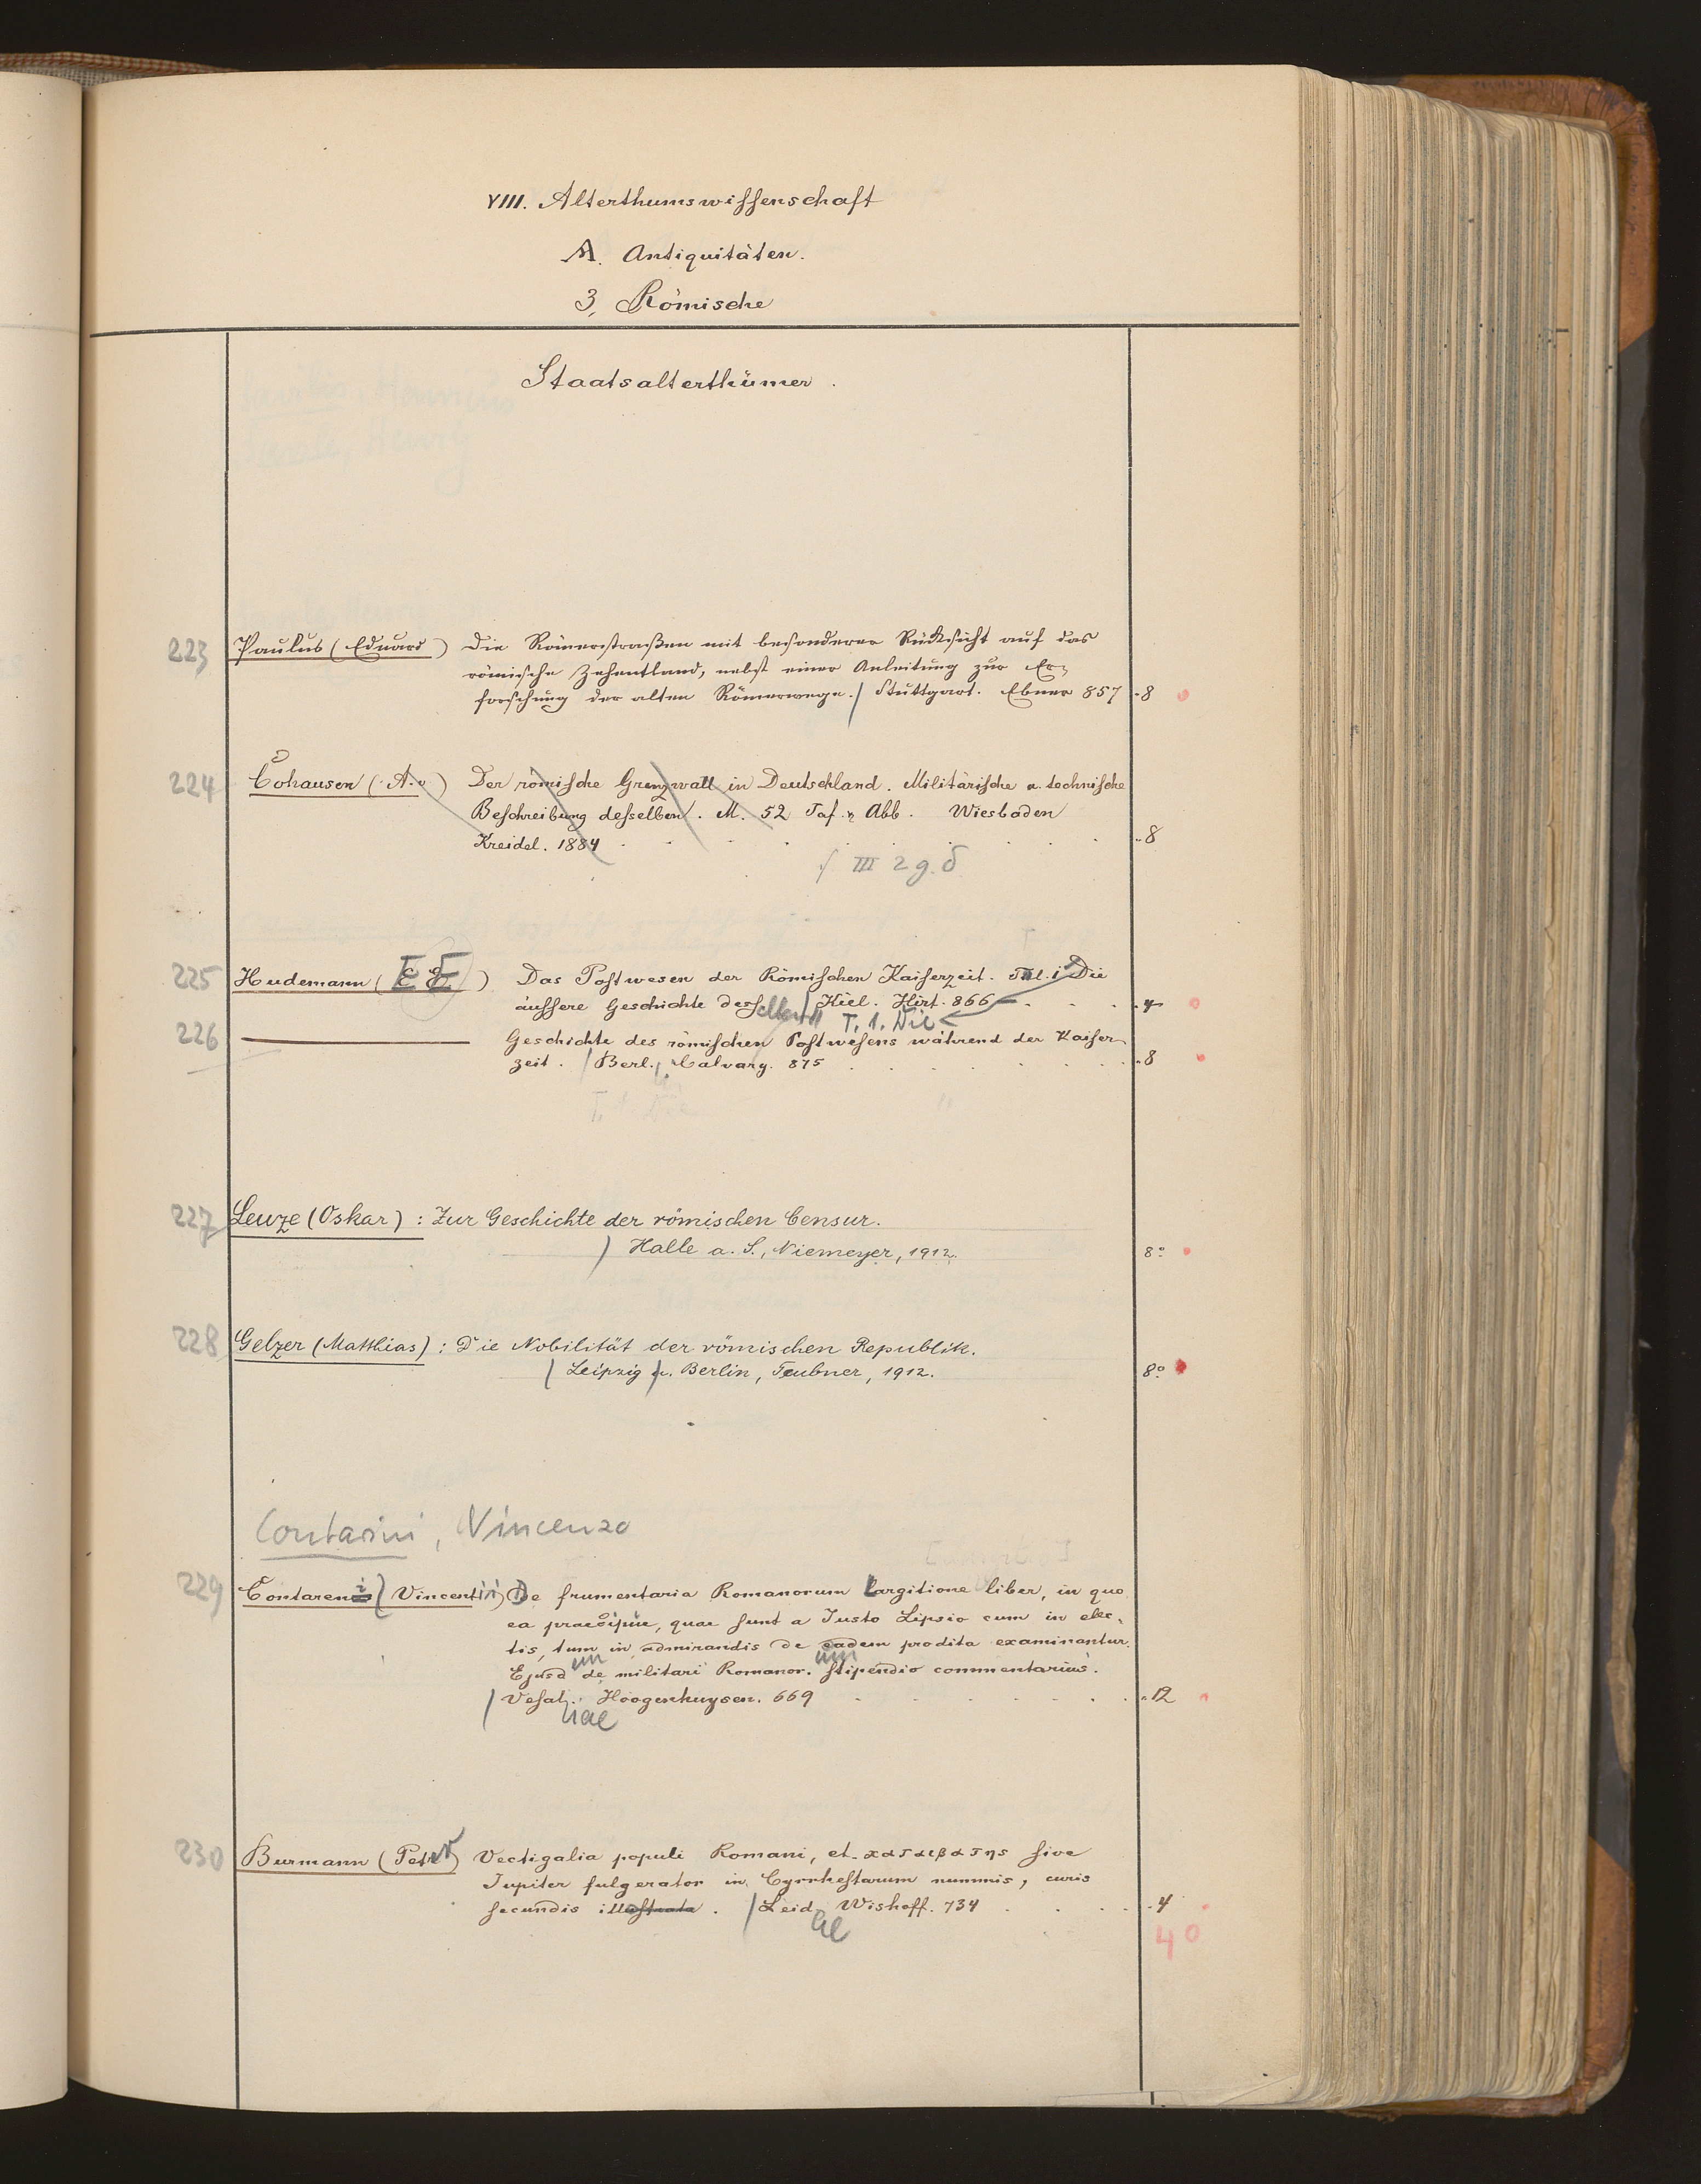 VIII. Alterthumswissenschaft
A. Antiquitäten.
3, Römische
Staatsalterthümer.
223 Paulus (Eduard) Die Römerstraßen mit besonderer Rücksicht auf das
römische Zehentland, nebst einer Anleitung zur Er-
forschung der alten Römerwege. / Stuttgart. Ebner 857 . 8
224 Cohausen (A. v) Der römische Grenzwall in Deutschland. Militärische u. technische
Beschreibung desselben. M. 52 Taf. u Abb. Wiesbaden
Kreidel. 1884 . . 8
III 2 g. δ
225 Hudemann (E E) Das Postwesen der Römischen Kaiserzeit. Thl. 1 Die
äussere Geschichte desselben / Kiel. Hirt. 866 . . 4
T. 1. Die
226 Geschichte des römischen Postwesens während der Kaiser-
zeit. / Berl., Calvary. 875 . . 8
227 Leuze (Oskar): Zur Geschichte der römischen Censur.
/ Halle a. S., Niemeyer, 1912. 8°
228 Gelzer (Matthias): Die Nobilität der römischen Republik.
/ Leipzig u. Berlin, Teubner, 1912. 8°
Contarini, Vincenzo
229 Contareni (Vincentii) De frumentaria Romanorum largitione liber, in quo
ea praecipue, quae sunt a Justo Lipsio cum in elec-
tis, tum in admirandis de eadem prodita examinantur.
Ejusd de militari Romanor. stipendio commentarius.
um um
/ Vesal. Hoogenhuysen. 669 . . 12
iae
230 Burmann (Petr) Vectigalia populi Romani, et καταιβατης sive
Jupiter fulgerator in Cyrrhestarum nummis, curis
secundis illustrata. / Leid. Wishoff. 734 . . 4
ae
40